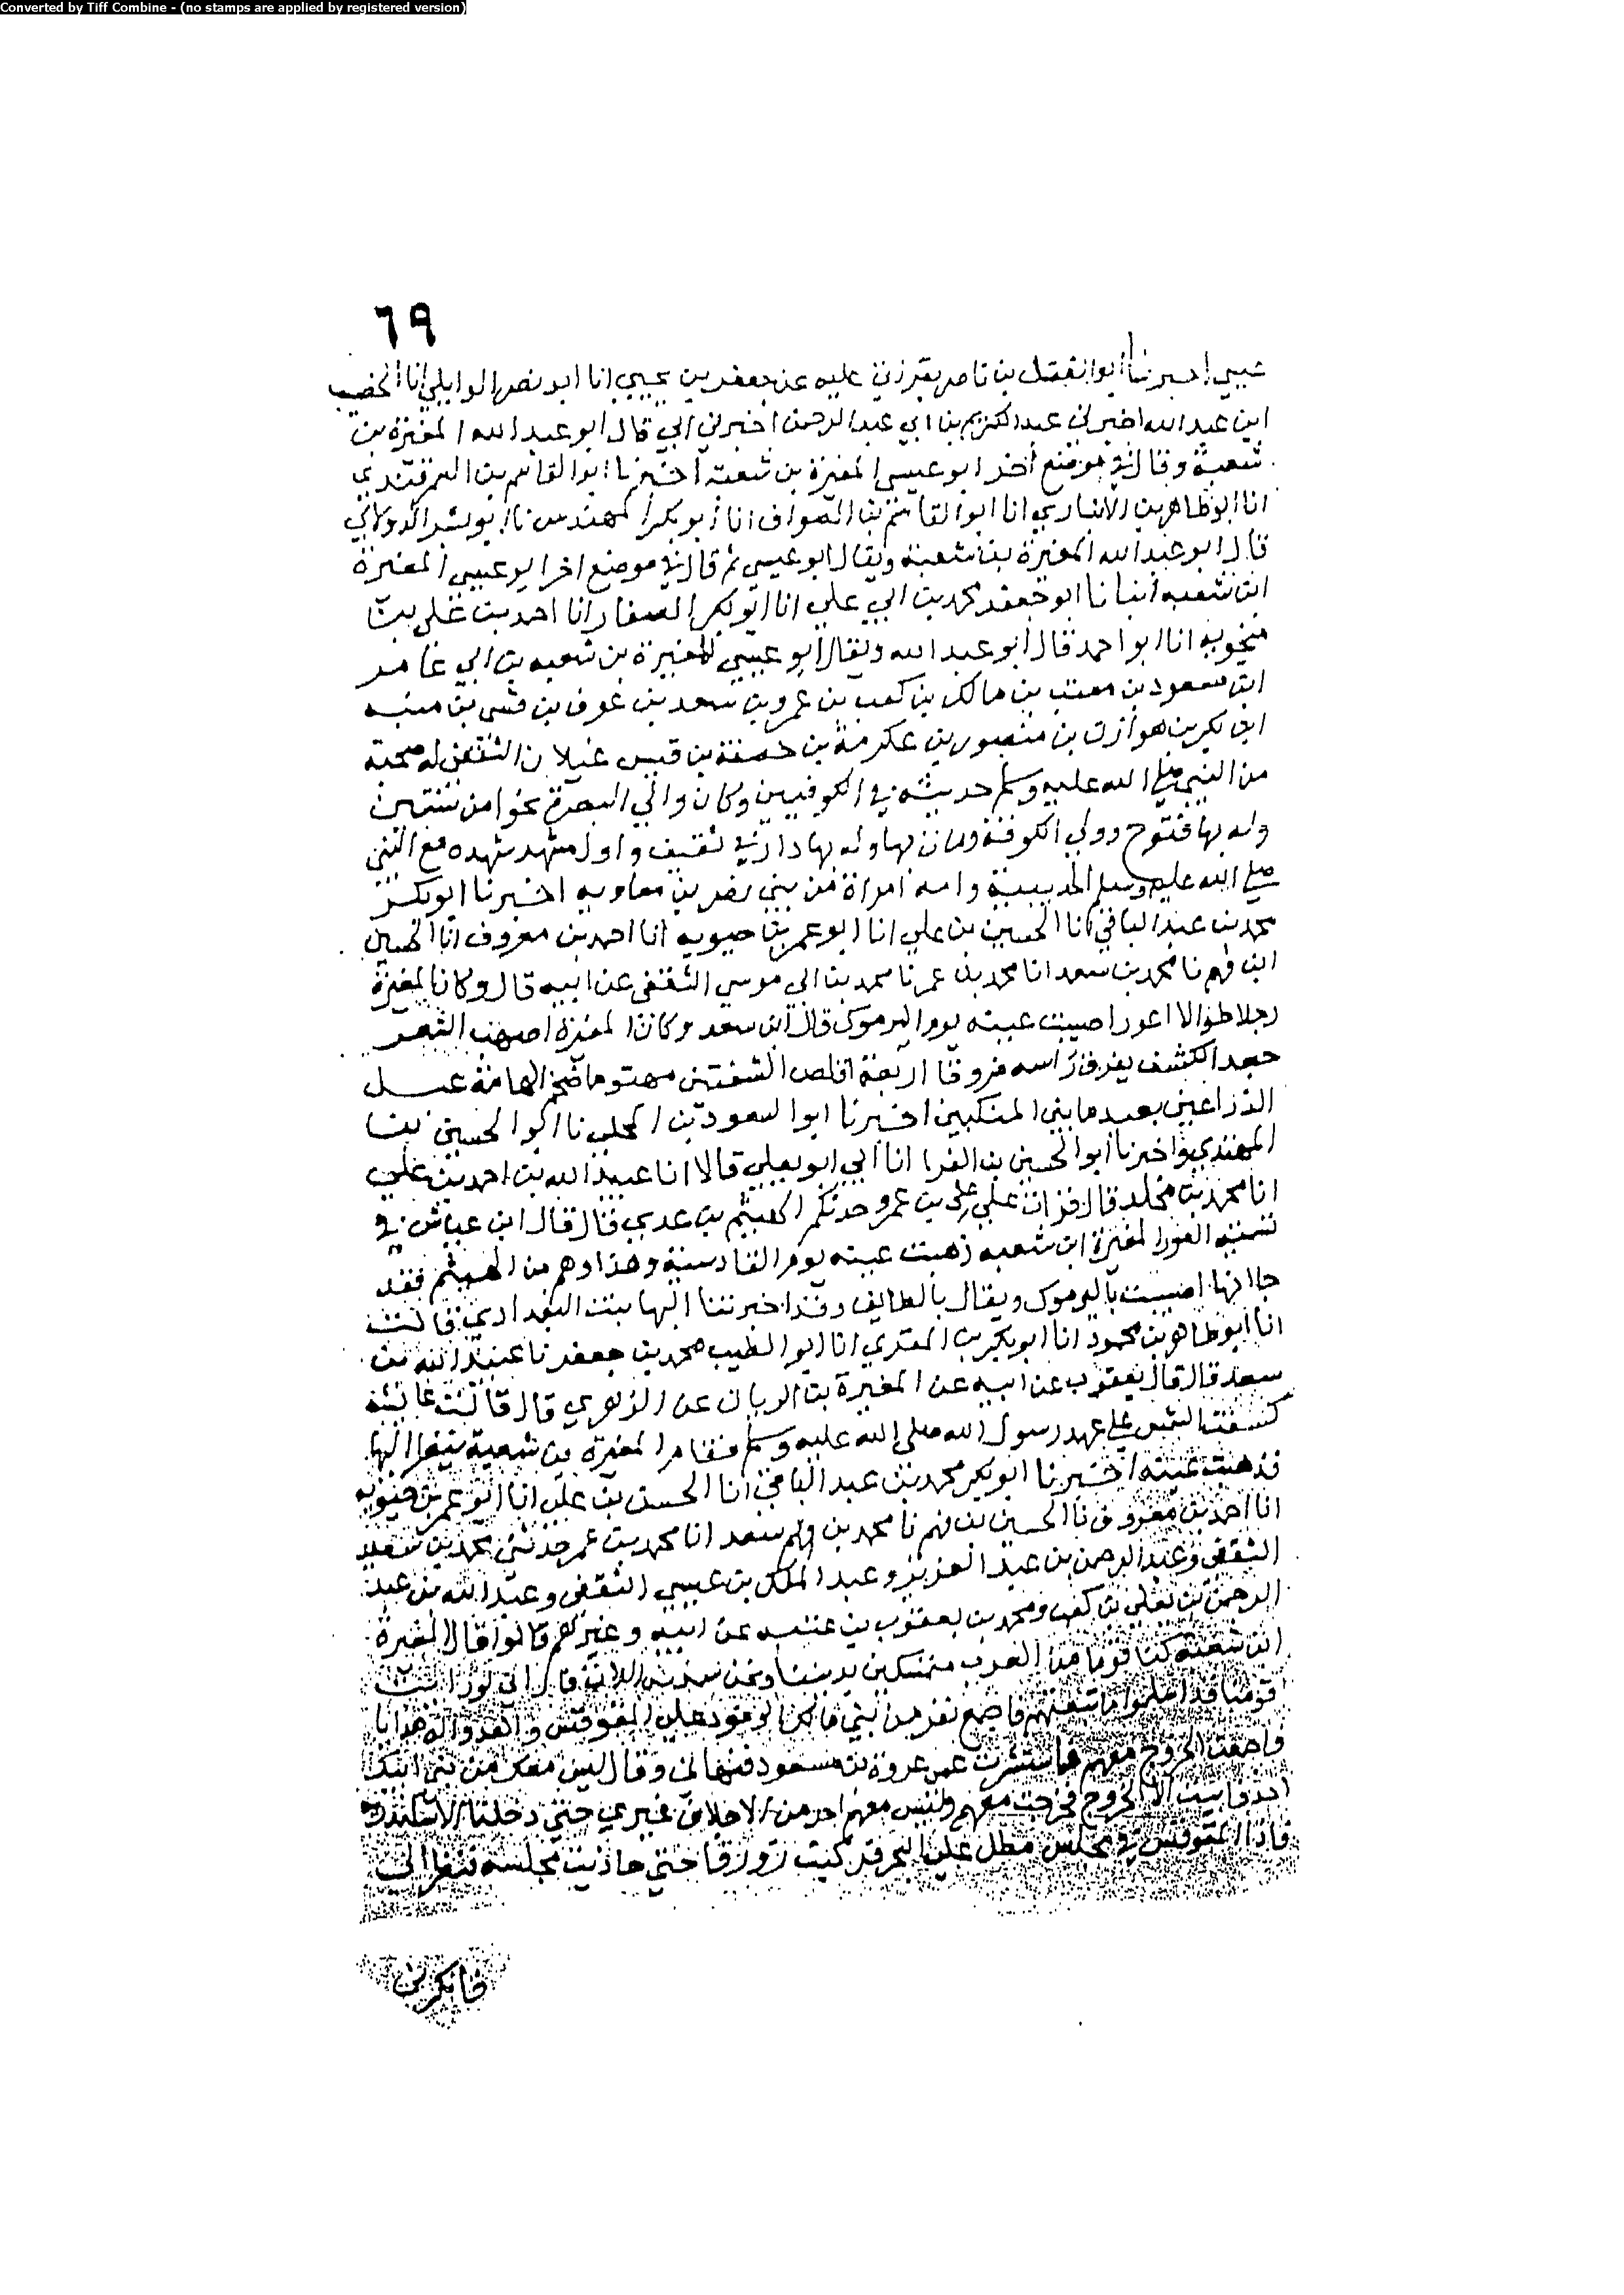 Converted by Tiff Combine - (no stamps are applied by registered version)
٦٩
عيسى اخبرنا ابو الفضل بن ناصر بقراتي عليه عن جعفر بن يحيى انا ابو نصر الوايلي انا الخصيب
ابن عبد الله اخبرني عبد الكريم بن ابي عبد الرحمن اخبرني ابي قال ابو عبد الله المغيرة بن
شعبة وقال في موضع اخر ابو عيسى المغيرة بن شعبة اخبرنا ابو القاسم بن السمرقندي
انا ابو طاهر بن الانباري انا ابو القاسم بن الصواف انا ابو بكر المهندس نا ابو بشر الدولابي
قال ابو عبد الله المغيرة بن شعبة ويقال ابو عيسى ثم قال في موضع اخر ابو عيسى المغيرة
ابن شعبه انبانا ابو جعفر محمد بن ابي علي انا ابو بكر الصفار انا احمد بن علي بن
منجويه انا ابو احمد قال ابو عبد الله ويقال ابو عيسى المغيرة بن شعبه بن ابي عامر
ابن مسعود بن معتب بن مالك بن كعب بن عمرو بن سعد بن عوف بن قسي بن منبه
ابن بكر بن هوازن بن منصور بن عكرمة بن خصفة بن قيس عيلان الثقفي له صحبة
من النبي صلى الله عليه وسلم حديثه في الكوفيين وكان والي البصرة نحوا من سنتين
وله بها فتوح وولي الكوفة ومات بها وله بها دار في ثقيف واول مشهد شهده مع النبي
صلى الله عليه وسلم الحديبية وامه امراة من بني نصر بن معاويه اخبرنا ابو بكر
محمد بن عبد الباقي انا الحسن بن علي انا ابو عمر بن حيويه انا احمد بن معروف انا الحسين
ابن فهم نا محمد بن سعد انا محمد بن عمر نا محمد بن ابي موسى الثقفي عن ابيه قال وكان المغيرة
رجلا طوالا اعور اصيبت عينه يوم اليرموك قال ابن سعد وكان المغيرة اصهب الشعر
جعد اكشف يفرق راسه فروقا اربعة اقلص الشفتين مهتوما ضخم الهامة عبل
الذراعين بعيد ما بين المنكبين اخبرنا ابو السعود بن المجلي نا ابو الحسين بن
المهتدي واخبرنا ابو الحسين بن الفرا انا ابي ابو يعلي قالا انا عبيد الله بن احمد بن علي
انا محمد بن مخلد قال قرات على علي بن عمرو حدثكم الهيثم بن عدي قال قال ابن عياش في
تسميه العور المغيرة ابن شعبه ذهبت عينه يوم القادسية وهذا وهم من الهيثم فقد
جا انها اصيبت باليرموك ويقال بالطايف وقد اخبرتنا ام البها بنت البغدادي قالت
انا ابو طاهر بن محمود انا ابو بكر بن المقري انا ابو الطيب محمد بن جعفر نا عبيد الله بن
سعد قال قال يعقوب عن ابيه عن المغيرة بن الريان عن الزهري قال قالت عائشة
كسفت الشمس على عهد رسول الله صلى الله عليه وسلم فقام المغيرة بن شعبة ينظر اليها
فذهبت عينه اخبرنا ابو بكر محمد بن عبد الباقي انا الحسن بن علي انا ابو عمر بن حيويه
انا احمد بن معروف نا الحسين بن فهم نا محمد بن سعد انا محمد بن عمر حدثني محمد بن سعيد
الثقفي وعبد الرحمن بن عبد العزيز وعبد الملك بن عيسى الثقفي وعبد الله بن عبد
الرحمن بن يعلي بن كعب ومحمد بن يعقوب بن عتبه عن ابيه وغيرهم قالوا قال المغيرة
ابن شعبة كنا قوما من العرب متمسكين بديننا ونحن سدنة اللات فاراني لو رايت
قومنا قد اسلموا ما تبعتهم فاجمع نفر من بني مالك الوفود على المقوقس واهدوا له هدايا
فاجمعت الخروج معهم فاستشرت عمي عروة بن مسعود فنهاني وقال ليس معك من بني ابيك
احد فابيت الا الخروج فخرجت معهم وليس معهم احد من الاحلاف غيري حتى دخلنا الاسكندرية
فاذا المقوقس في مجلس مطل على البحر فركبت زورقا حتى حاذيت مجلسه فنظر الي
فانكرني